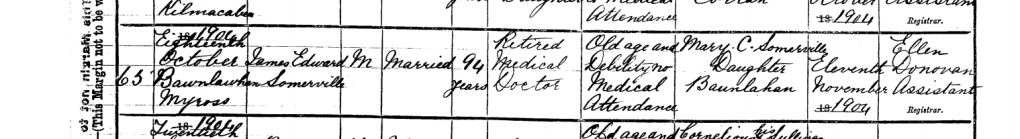 Kilmacabea Daughter Medical
Attendance 18 1904 Assistant
Registrar.
of for
(This Margin not to be w
1904
Eighteenth Retired Old age and Mary C. Somerville Ellen
October James Edward M Married 94 Medical Debility no Daughter Eleventh Donovan
63 Bawnlahan Somerville years Doctor Medical Baunlahan November Assistant
Myross Attendance 18 1904 Registrar.
1904
Twentieth Old age and Cornelius Sullivan